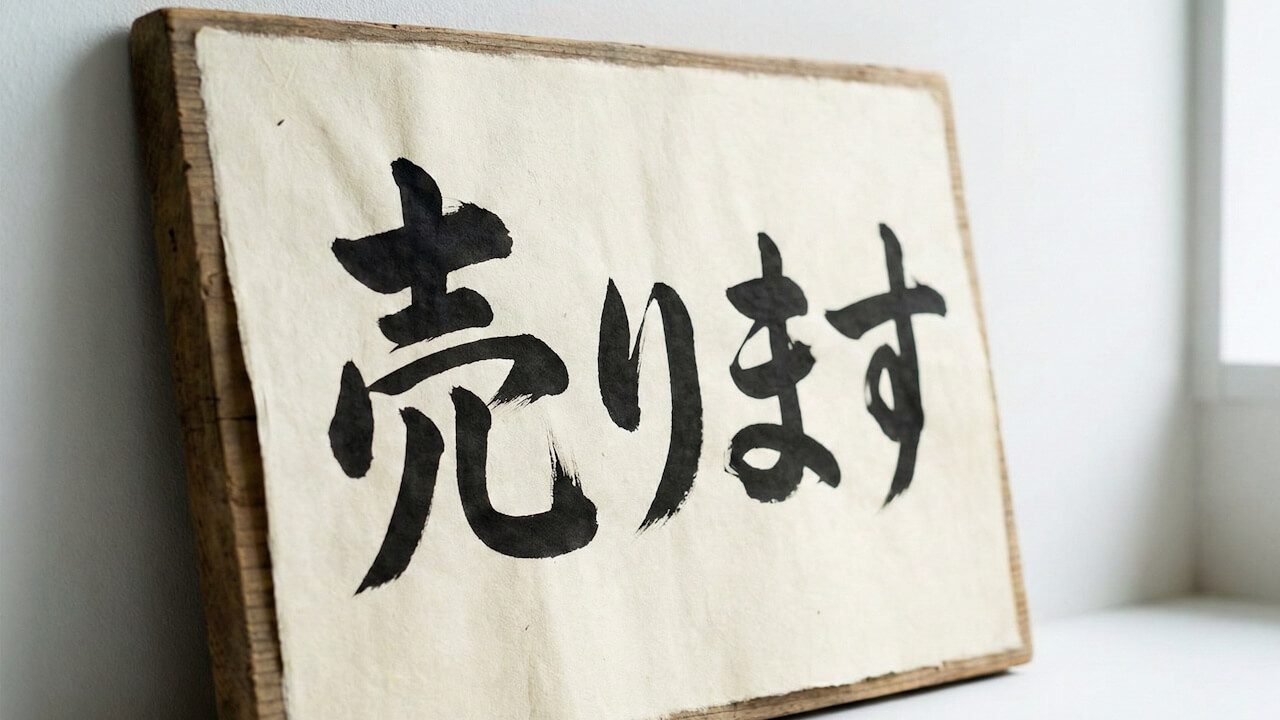 売ります